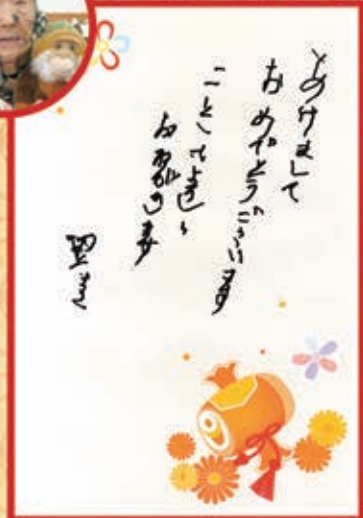 あけまして
おめでとうございます
ことしもよろしく
おねがいします